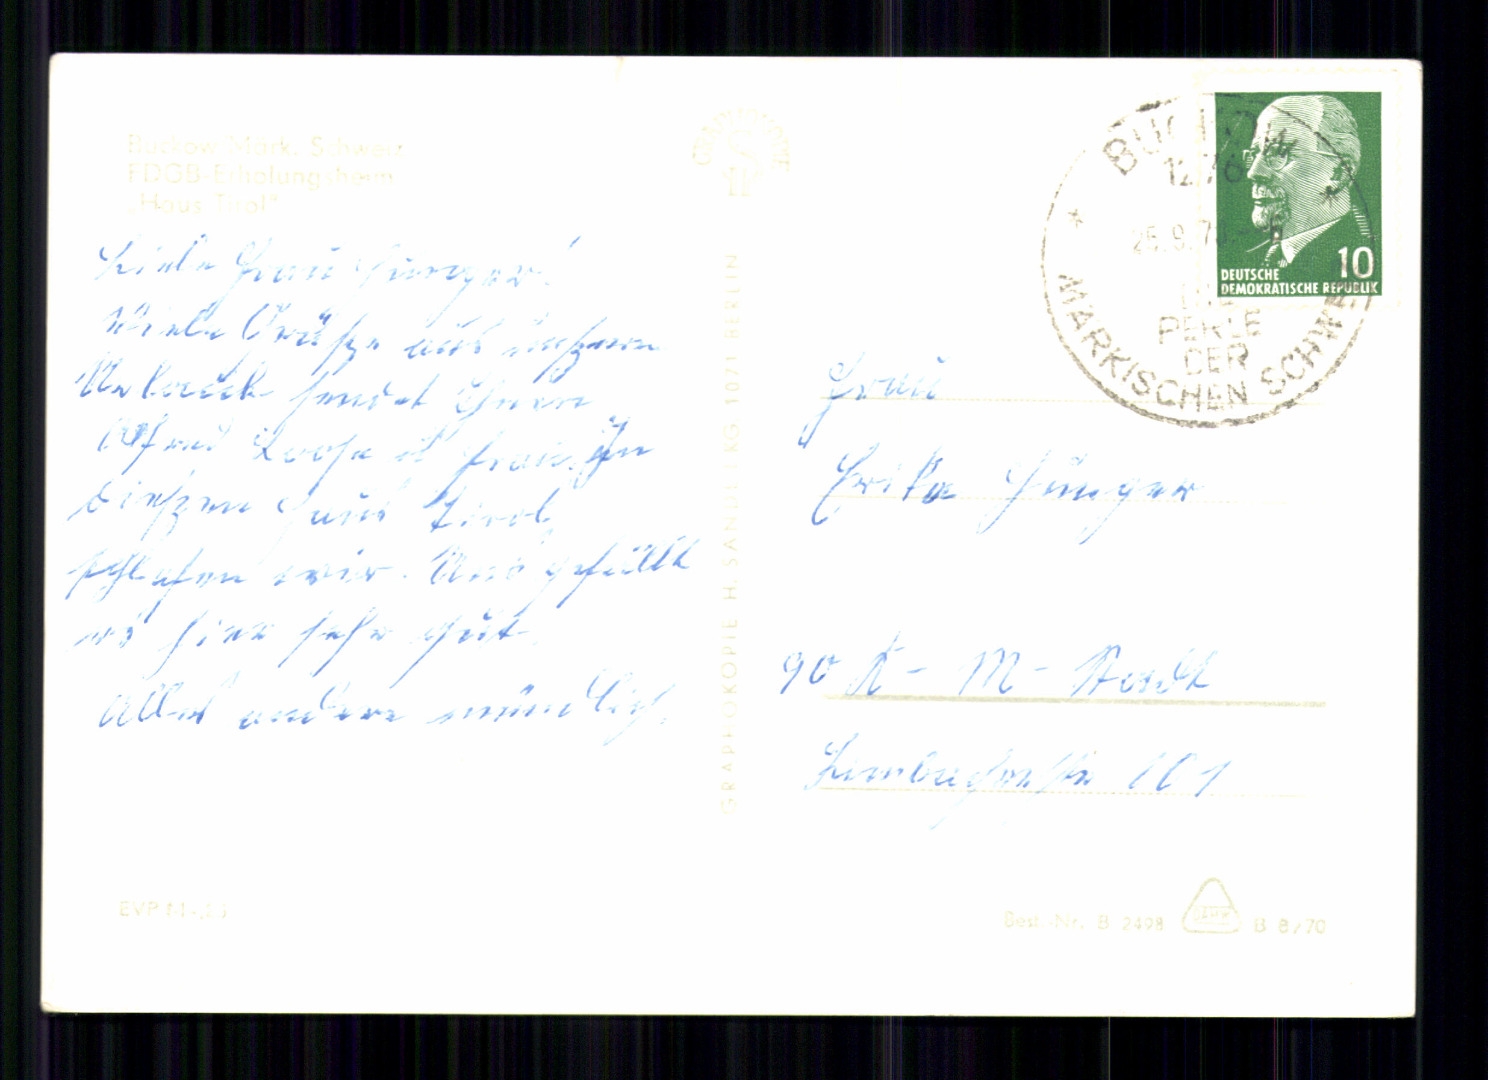 Buckow Märk. Schweiz
FDGB-Erholungsheim
„Haus Tirol"
Liebe Frau Hünger!
Viele Grüße aus unserem
Urlaub sendet Ihnen
Alfred Loose u. Frau. In
diesem Haus Tirol
schlafen wir. Uns gefällt
es hier sehr gut.
Alles andere mündlich.
EVP M -,25
GRAPHOKOPIE H. SANDER KG. 1071 BERLIN
BUCKOW
1276
25.9.70
DIE
PERLE
DER
MÄRKISCHEN SCHWEIZ
10
DEUTSCHE
DEMOKRATISCHE REPUBLIK
Frau
Erika Hünger
90 K-M-Stadt
101
Best.-Nr. B 2498
B 8/70